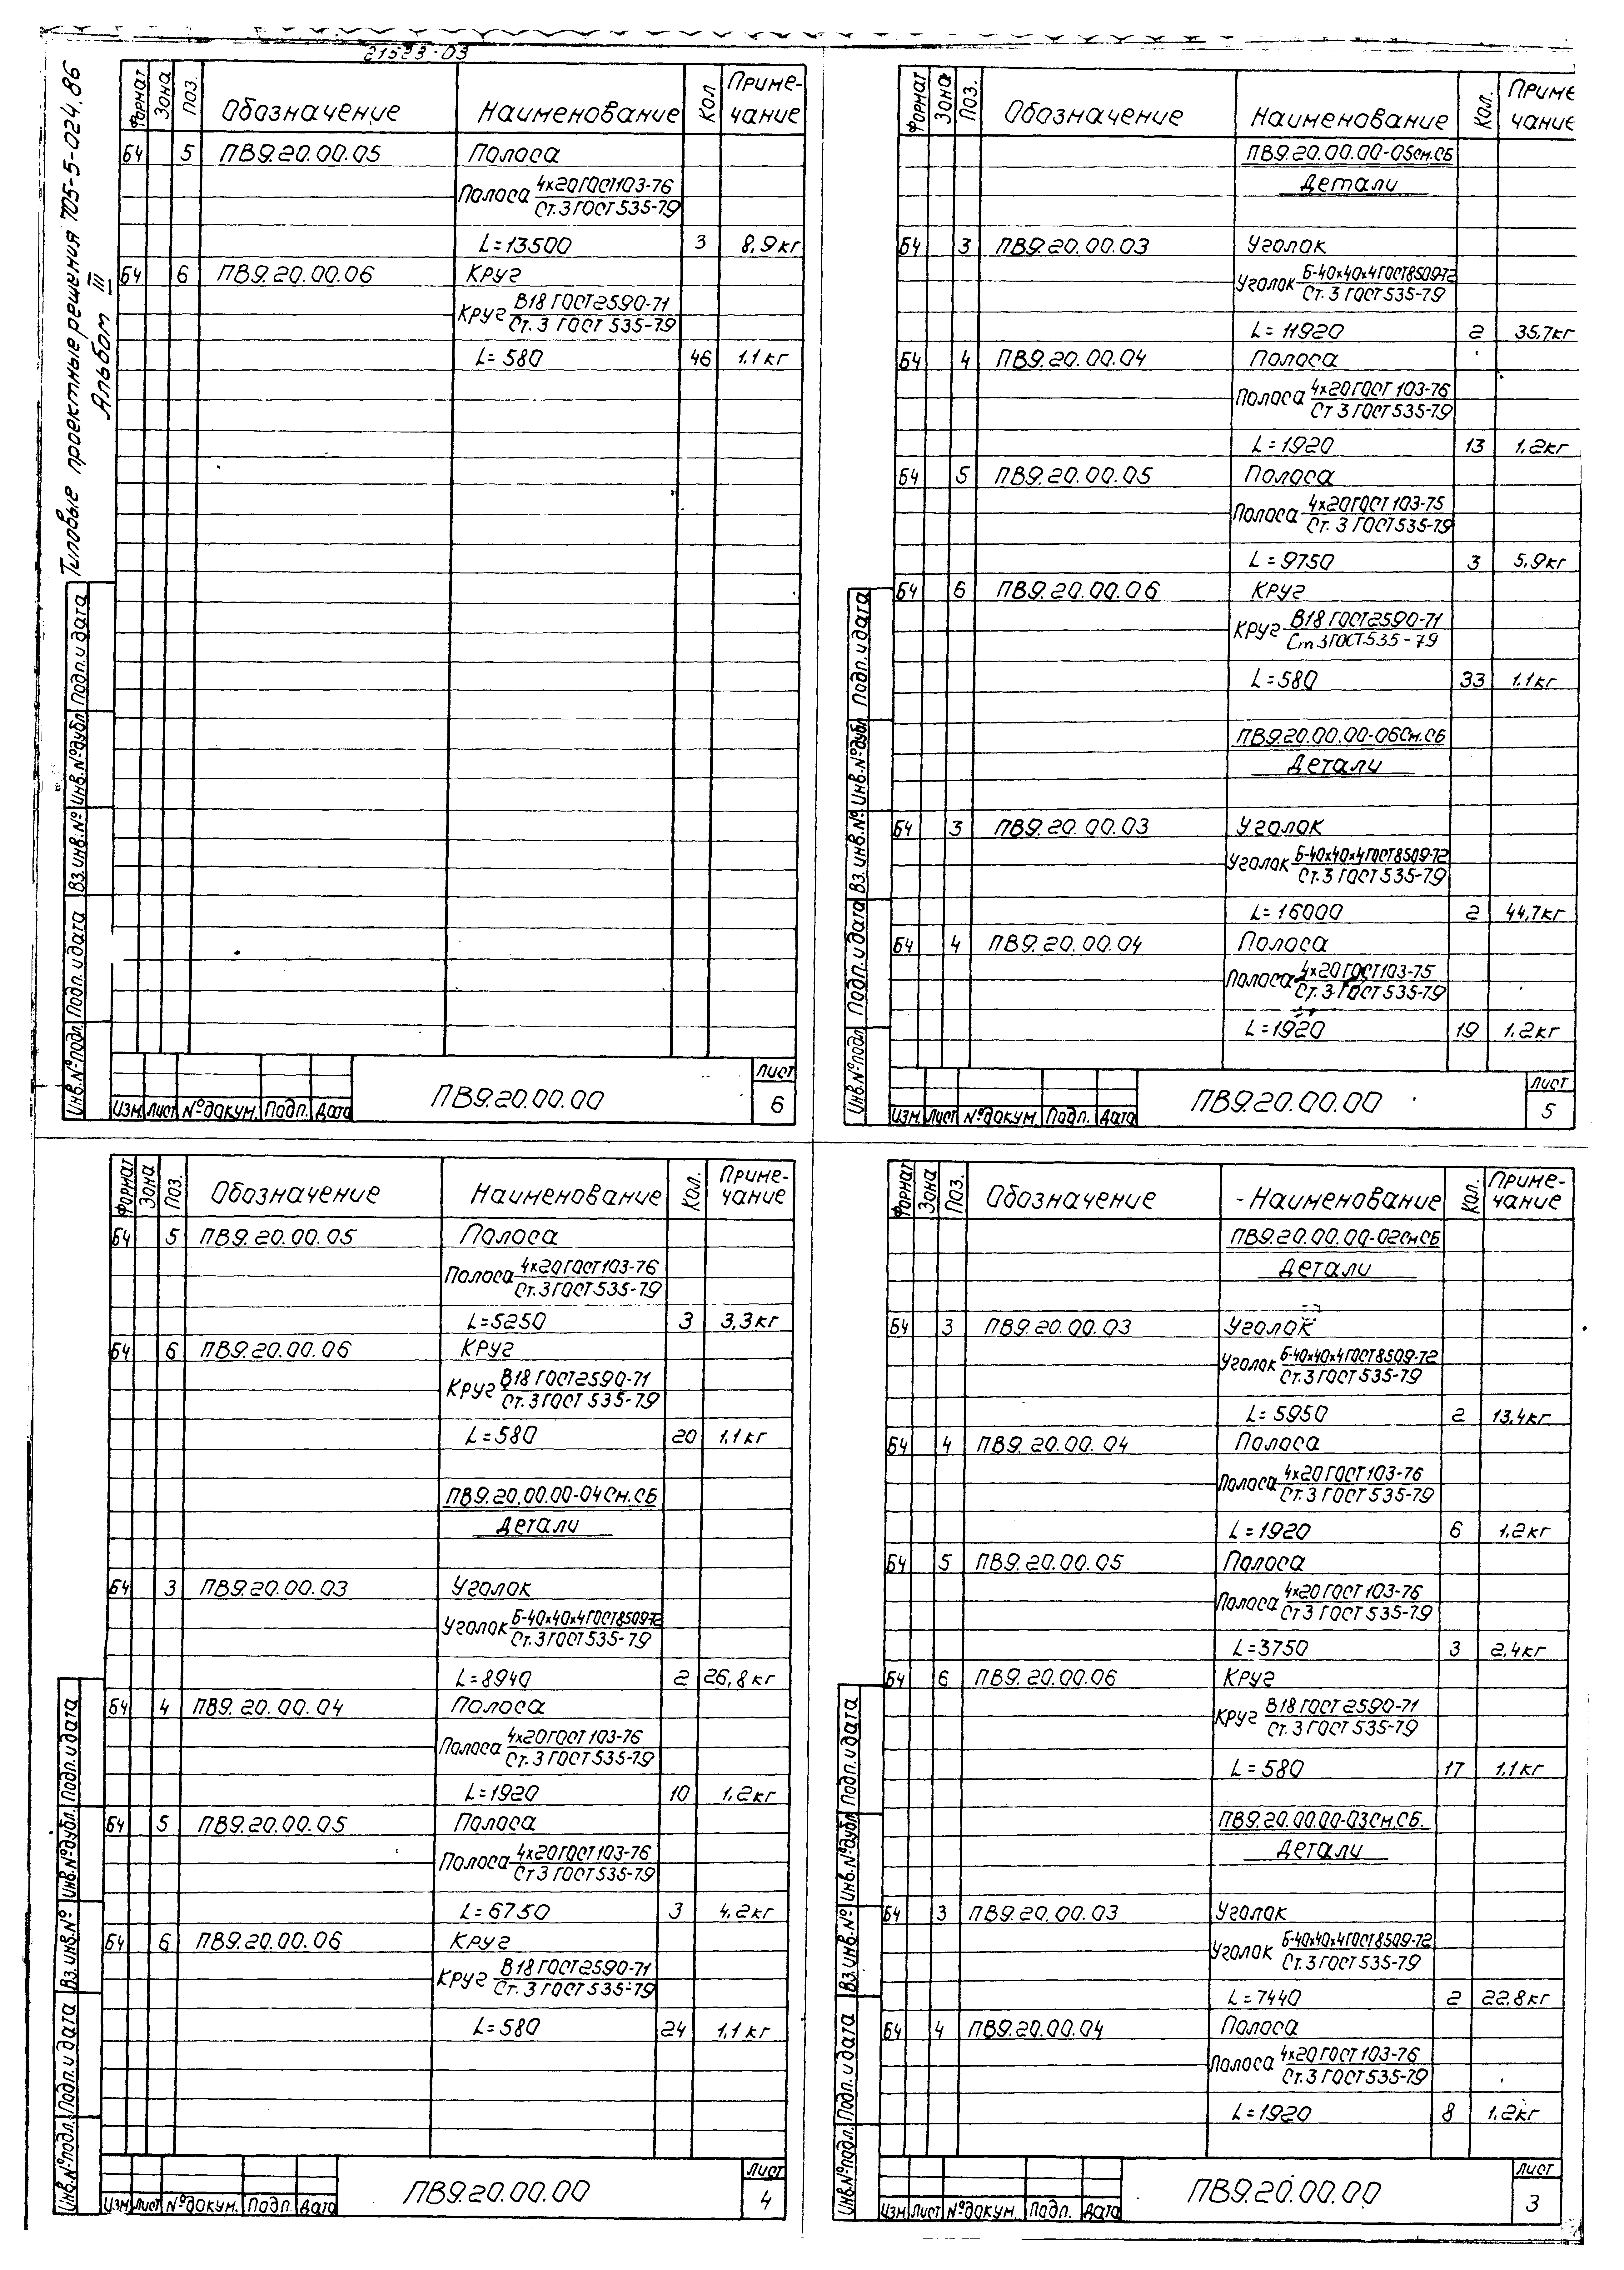 21523-03
Типовые проектные решения 705-5-024.86
Альбом III
Формат Зона Поз. Обозначение Наименование Кол Приме-
чание
БЧ 5 ПВ9.20.00.05 Полоса
Полоса 4х20 ГОСТ 103-76
Ст.3 ГОСТ 535-79
L=13500 3 8,9кг
БЧ 6 ПВ9.20.00.06 Круг
Круг В18 ГОСТ 2590-71
Ст.3 ГОСТ 535-79
L=580 46 1.1кг
Инв.№подл. Подп. и дата Вз.инв.№ Инв.№дубл Подп. и дата
Изм. Лист №докум. Подп. Дата
ПВ9.20.00.00
Лист
6
Формат Зона Поз. Обозначение Наименование Кол. Приме
чание
ПВ9.20.00.00-05см.СБ
Детали
БЧ 3 ПВ9.20.00.03 Уголок
Уголок Б-40х40х4 ГОСТ 8509-72
Ст.3 ГОСТ 535-79
L=11920 2 35,7кг
БЧ 4 ПВ9.20.00.04 Полоса
Полоса 4х20 ГОСТ 103-76
Ст 3 ГОСТ 535-79
L=1920 13 1,2кг
БЧ 5 ПВ9.20.00.05 Полоса
Полоса 4х20 ГОСТ 103-75
Ст. 3 ГОСТ 535-79
L=9750 3 5,9кг
БЧ 6 ПВ9.20.00.06 Круг
Круг В18 ГОСТ 2590-71
Ст 3 ГОСТ 535-79
L=580 33 1.1кг
ПВ9.20.00.00-06см.СБ
Детали
БЧ 3 ПВ9.20.00.03 Уголок
Уголок Б-40х40х4 ГОСТ 8509-72
Ст.3 ГОСТ 535-79
L=16000 2 44,7кг
БЧ 4 ПВ9.20.00.04 Полоса
Полоса 4х20 ГОСТ 103-75
Ст.3 ГОСТ 535-79
L=1920 19 1,2кг
Инв.№подл Подп. и дата Вз.инв.№ Инв.№дубл Подп. и дата
Изм. Лист №докум. Подп. Дата
ПВ9.20.00.00
Лист
5
Формат Зона Поз. Обозначение Наименование Кол. Приме-
чание
БЧ 5 ПВ9.20.00.05 Полоса
Полоса 4х20 ГОСТ 103-76
Ст.3 ГОСТ 535-79
L=5250 3 3,3кг
БЧ 6 ПВ9.20.00.06 Круг
Круг В18 ГОСТ 2590-71
Ст.3 ГОСТ 535-79
L=580 20 1,1кг
ПВ9.20.00.00-04см.СБ
Детали
БЧ 3 ПВ9.20.00.03 Уголок
Уголок Б-40х40х4 ГОСТ 8509-72
Ст.3 ГОСТ 535-79
L=8940 2 26,8кг
БЧ 4 ПВ9.20.00.04 Полоса
Полоса 4х20 ГОСТ 103-76
Ст.3 ГОСТ 535-79
L=1920 10 1,2кг
БЧ 5 ПВ9.20.00.05 Полоса
Полоса 4х20 ГОСТ 103-76
Ст 3 ГОСТ 535-79
L=6750 3 4,2кг
БЧ 6 ПВ9.20.00.06 Круг
Круг В18 ГОСТ 2590-71
Ст.3 ГОСТ 535-79
L=580 24 1,1кг
Инв.№подл. Подп. и дата Вз.инв.№ Инв.№дубл. Подп. и дата
Изм Лист №докум. Подп. Дата
ПВ9.20.00.00
Лист
4
Формат Зона Поз. Обозначение Наименование Кол. Приме-
чание
ПВ9.20.00.00-02см СБ
Детали
БЧ 3 ПВ9.20.00.03 Уголок
Уголок Б-40х40х4 ГОСТ 8509-72
Ст.3 ГОСТ 535-79
L=5950 2 13,4кг
БЧ 4 ПВ9.20.00.04 Полоса
Полоса 4х20 ГОСТ 103-76
Ст.3 ГОСТ 535-79
L=1920 6 1,2кг
БЧ 5 ПВ9.20.00.05 Полоса
Полоса 4х20 ГОСТ 103-76
Ст 3 ГОСТ 535-79
L=3750 3 2,4кг
БЧ 6 ПВ9.20.00.06 Круг
Круг В18 ГОСТ 2590-71
Ст. 3 ГОСТ 535-79
L=580 17 1,1кг
ПВ9.20.00.00-03см.СБ.
Детали
БЧ 3 ПВ9.20.00.03 Уголок
Уголок Б-40х40х4 ГОСТ 8509-72
Ст.3 ГОСТ 535-79
L=7440 2 22,8кг
БЧ 4 ПВ9.20.00.04 Полоса
Полоса 4х20 ГОСТ 103-76
Ст.3 ГОСТ 535-79
L=1920 8 1,2кг
Инв.№подл. Подп. и дата Вз.инв.№ Инв.№дубл Подп. и дата
Изм Лист №докум. Подп. Дата
ПВ9.20.00.00
Лист
3